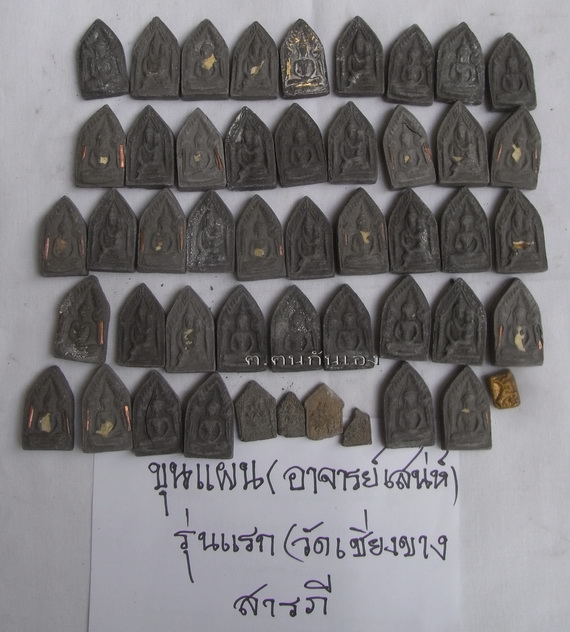 ต.ตนกันเอง
ขุนแผน(อาจารย์เสน่ห์)
รุ่นแรก(วัดเชี่ยงขาง
สารภี